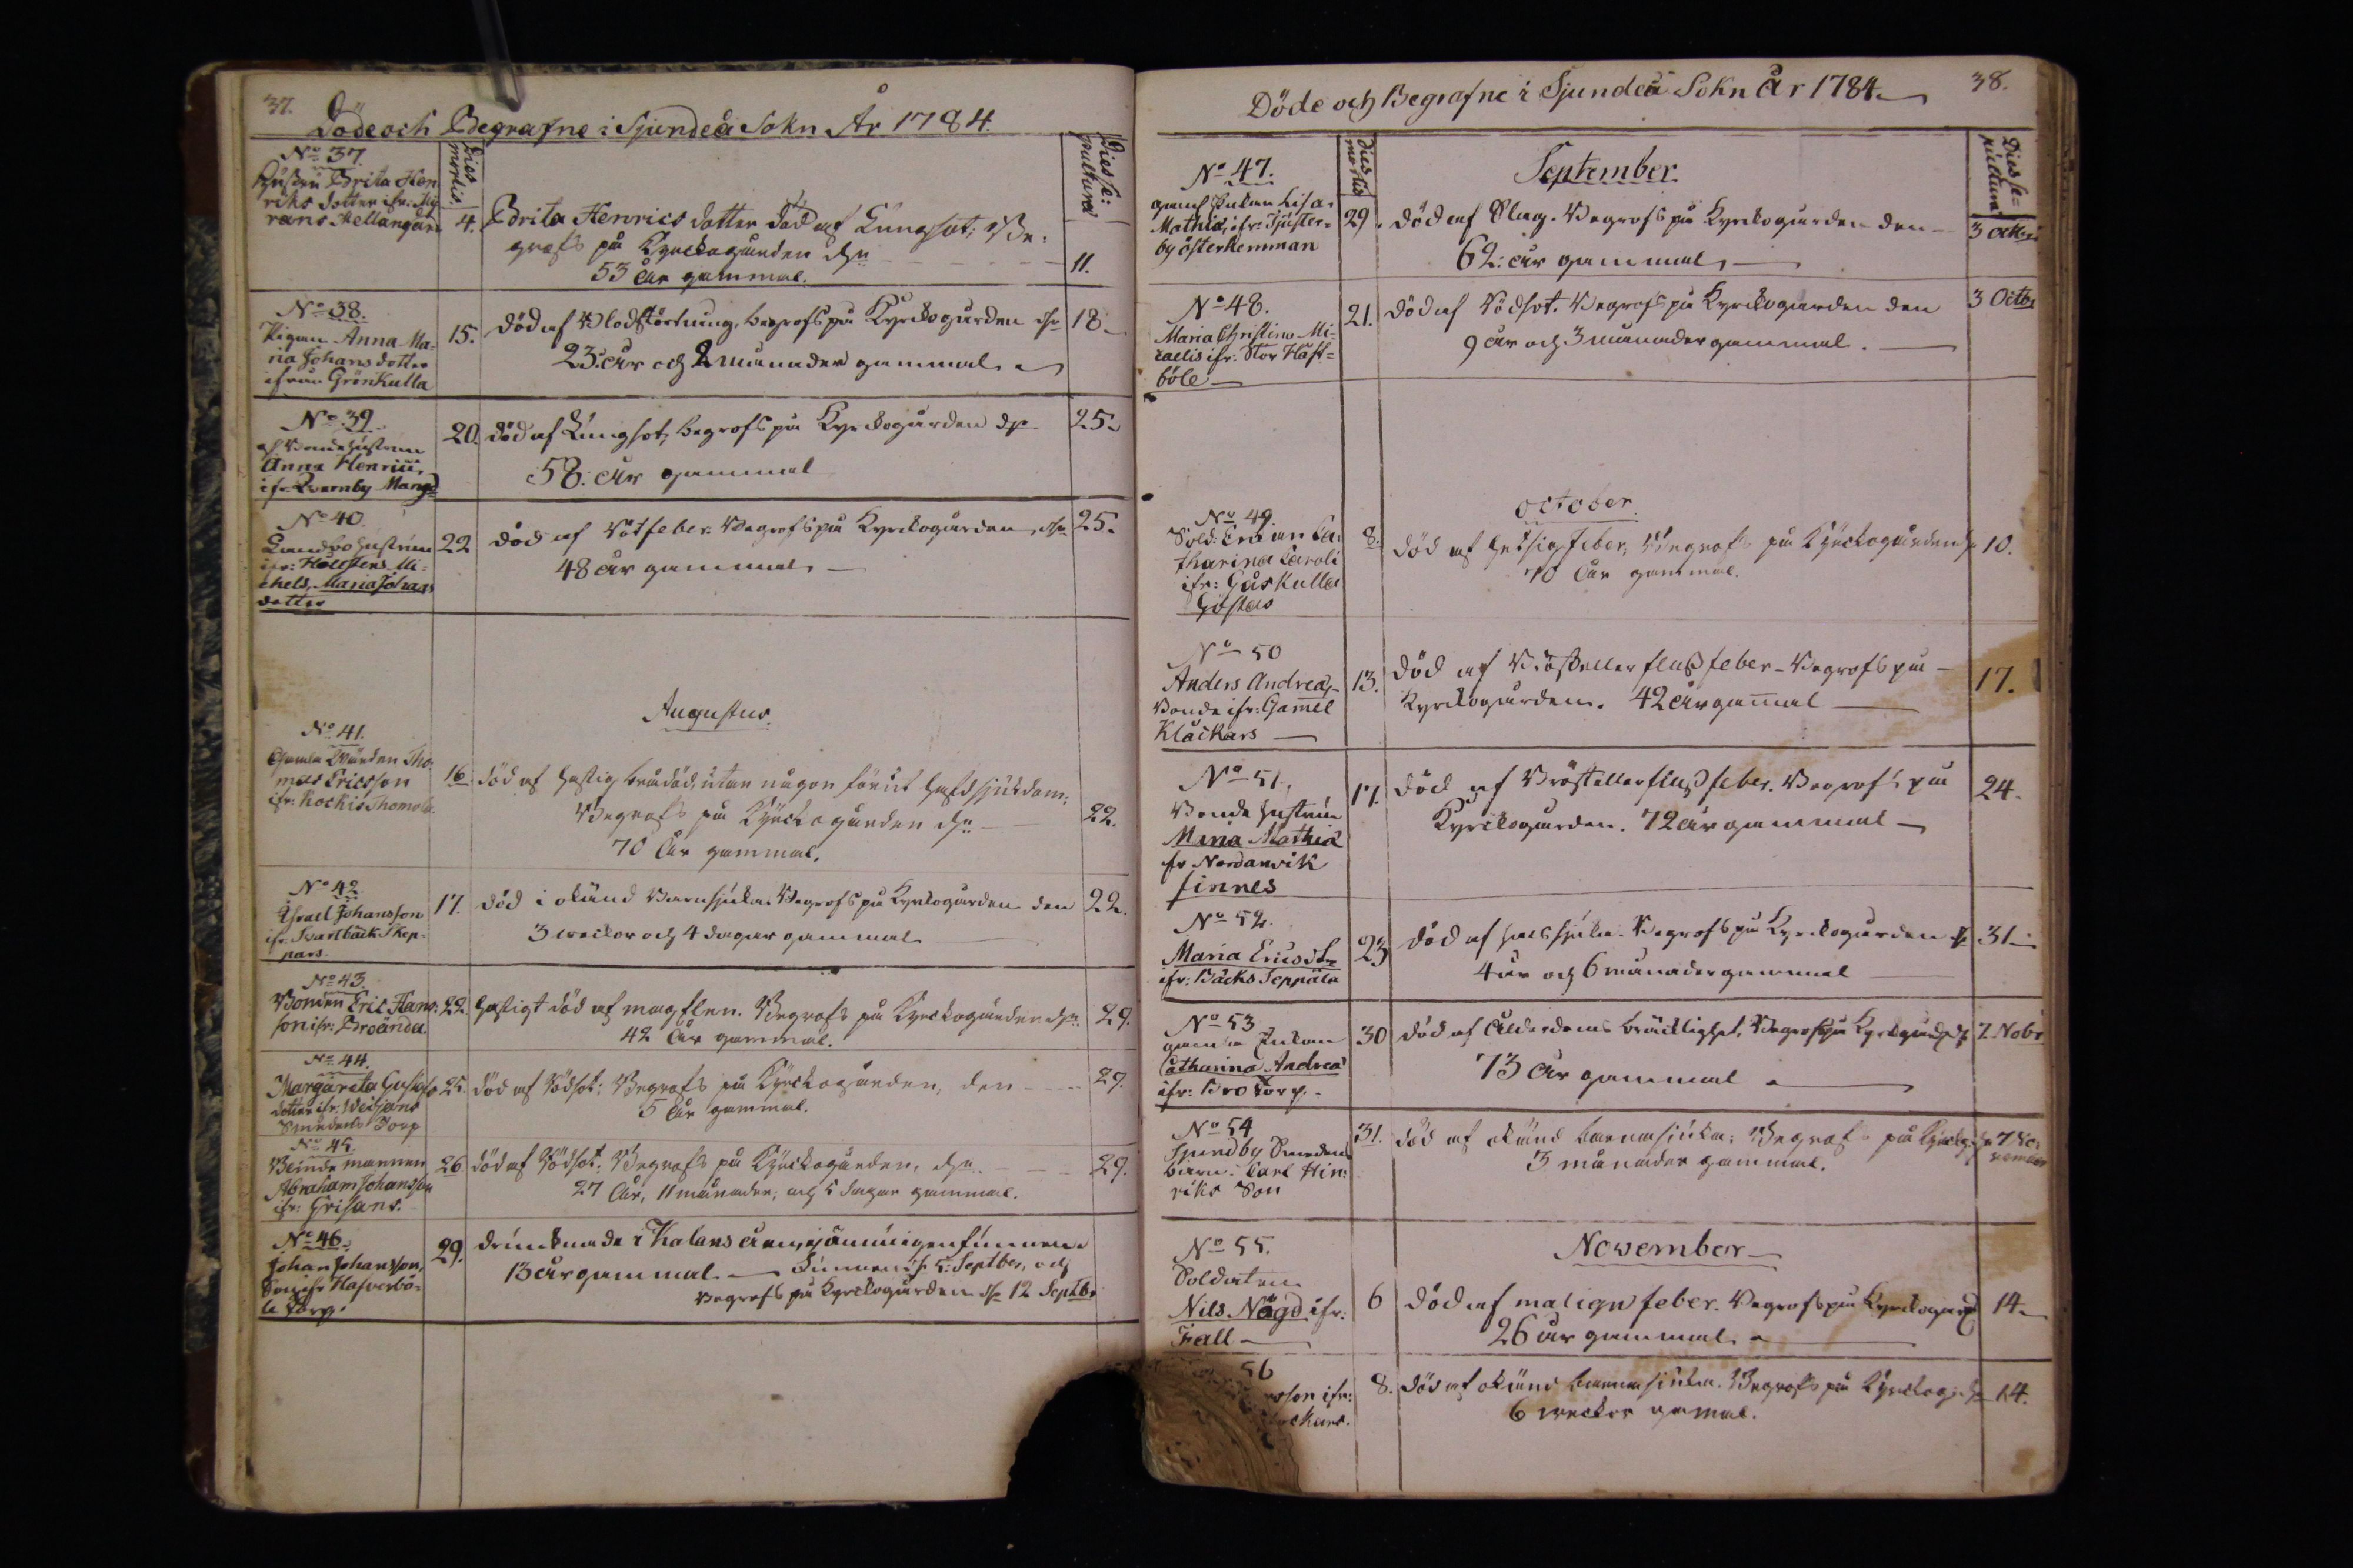 37.
Döde och Begrafne i Sjundeå Sokn År 1784.
Dies mortis.
Dies se: pultura
No 37.
Hustru Brita Hen
riks dotter ifr: My
rans Mellangård
4.
Brita Henrics dotter död af Lungsot; Be:
grafs på Kyrckogården dn
53 år gammal.
11.
No 38.
Pigan Anna Ma-
ria Johans dotter
ifrån Grönkulla
15.
död af Blodstörtning, begrofs på Kyrckogården dn
18.
23. år och 2 månader gammal
No 39.
Bondehustrun
Anna Henrici,
ifr Qvarnby Mangs
20.
död af Lungsot, begrofs på Kyrckogården dn
25.
58. år gammal
No 40.
Landbohustrun
ifr: Hollstens Mi-
chels, Maria Johans
dotter
22
död af Rötfeber. Begrofs på Kyrckogården, dn
25.
48 år gammal,
Augustus.
No 41.
Gamla Bonden Tho-
mas Ericsson
ifr: Kockis Thomola.
16
död af hastig brådöd, utan någon förut hafd sjukdom;
Begrafs på Kyrckogården dn
22.
70 år gammal.
No 42
Israel Johansson
ifr: Svartbäck Skep-
pars.
17.
död i okänd Barnsjuka. Begrofs på Kyrckogården den
22.
3 weckor och 4 dagar gammal
No 43.
Bonden Eric Hans:
son ifr: Broända.
22.
hastigt död af magplån. Begrafs på Kyrckogården dn
29.
42 år gammal.
No 44.
Margareta Gustafs
dotter ifr: Weijans
Smedens Torp
25.
död af Rödsot; Begrafs på Kyrckogården, den
29.
5 år gammal.
No 45.
Blinde mannen
Abraham Johansson
ifr: Grisans.
26
död af Rödsot; Begrafs på Kyrckogården, dn
29.
27 år, 11 månader, och 5 dagar gammal.
No 46.
Johan Johansson,
Son ifr Hafverbö-
le Torp.
29.
drunknade i Kalans åen, ej ännu igenfunnen
13 år gammal. Funnen dn 5. Septber, och
Begrofs på Kyrckogården dn 12 Septbr
38.
Döde och Begrafne i Sjundeå Sokn år 1784.
Dies mortis
Dies se= pultura
September
No 47.
gamla Enkan Lisa
Mathiæ, ifr: Tjuster=
by österhemman
29.
död af Slag. Begrofs på Kyrckogården den
3 Octbr
62: år gammal,
No 48.
Maria Christina Mi-
caelis ifr: Stor Haft=
böle
21.
död af Rödsot. Begrofs på Kyrckogården den
3 Octbr
9 år och 3 månader gammal.
October.
No 49.
Sold: Enkan Ca-
tharina Caroli
ifr: Gårskulla
Göstas
8.
död af hetsig feber, Begrafs på Kyrckogården dn
10.
70 år gammal.
No 50
Anders Andreæ,
Bonde ifr: Gam̄el
Klåckars
13.
död af Bröst eller flussfeber. Begrofs på
17.
Kyrckogården. 42 år gam̄al
No 51.
Bonde hustrun
Mina Mathiæ
fr Nordanvik
finnes
17.
död af Bröst eller fluss feber. Begrofs på
24.
Kyrckogården. 72 år gammal
No 52.
Maria Erics dr
ifr: Bäcks Seppälä
23
död af halssjuka. Begrofs på Kyrckogården dn
31
4 år och 6 månader gammal
No 53
gamla Enkan
Catharina Andreæ
ifr: Bro torp.
30
död af ålderdoms bräcklighet, Begrofs på Kyrckogården dn
7. Nobr
73 år gammal
No 54
Sjundby Smedens
barn. Carl Hin:
riks Son
31.
död af okänd barnasjuka; Begrafs på Kyrckog: dn
7 No: vember
3 månader gammal.
November
No 55.
Soldaten
Nils Nögd ifr.
Fall
6
död af malign feber. Begrofs på Kyrckogård
14.
26 år gammal.
56
son ifr:
ockars.
8.
död af okänd barnasjuka. Begrafs på Kyrckog: dn
14.
6 weckor gamal.